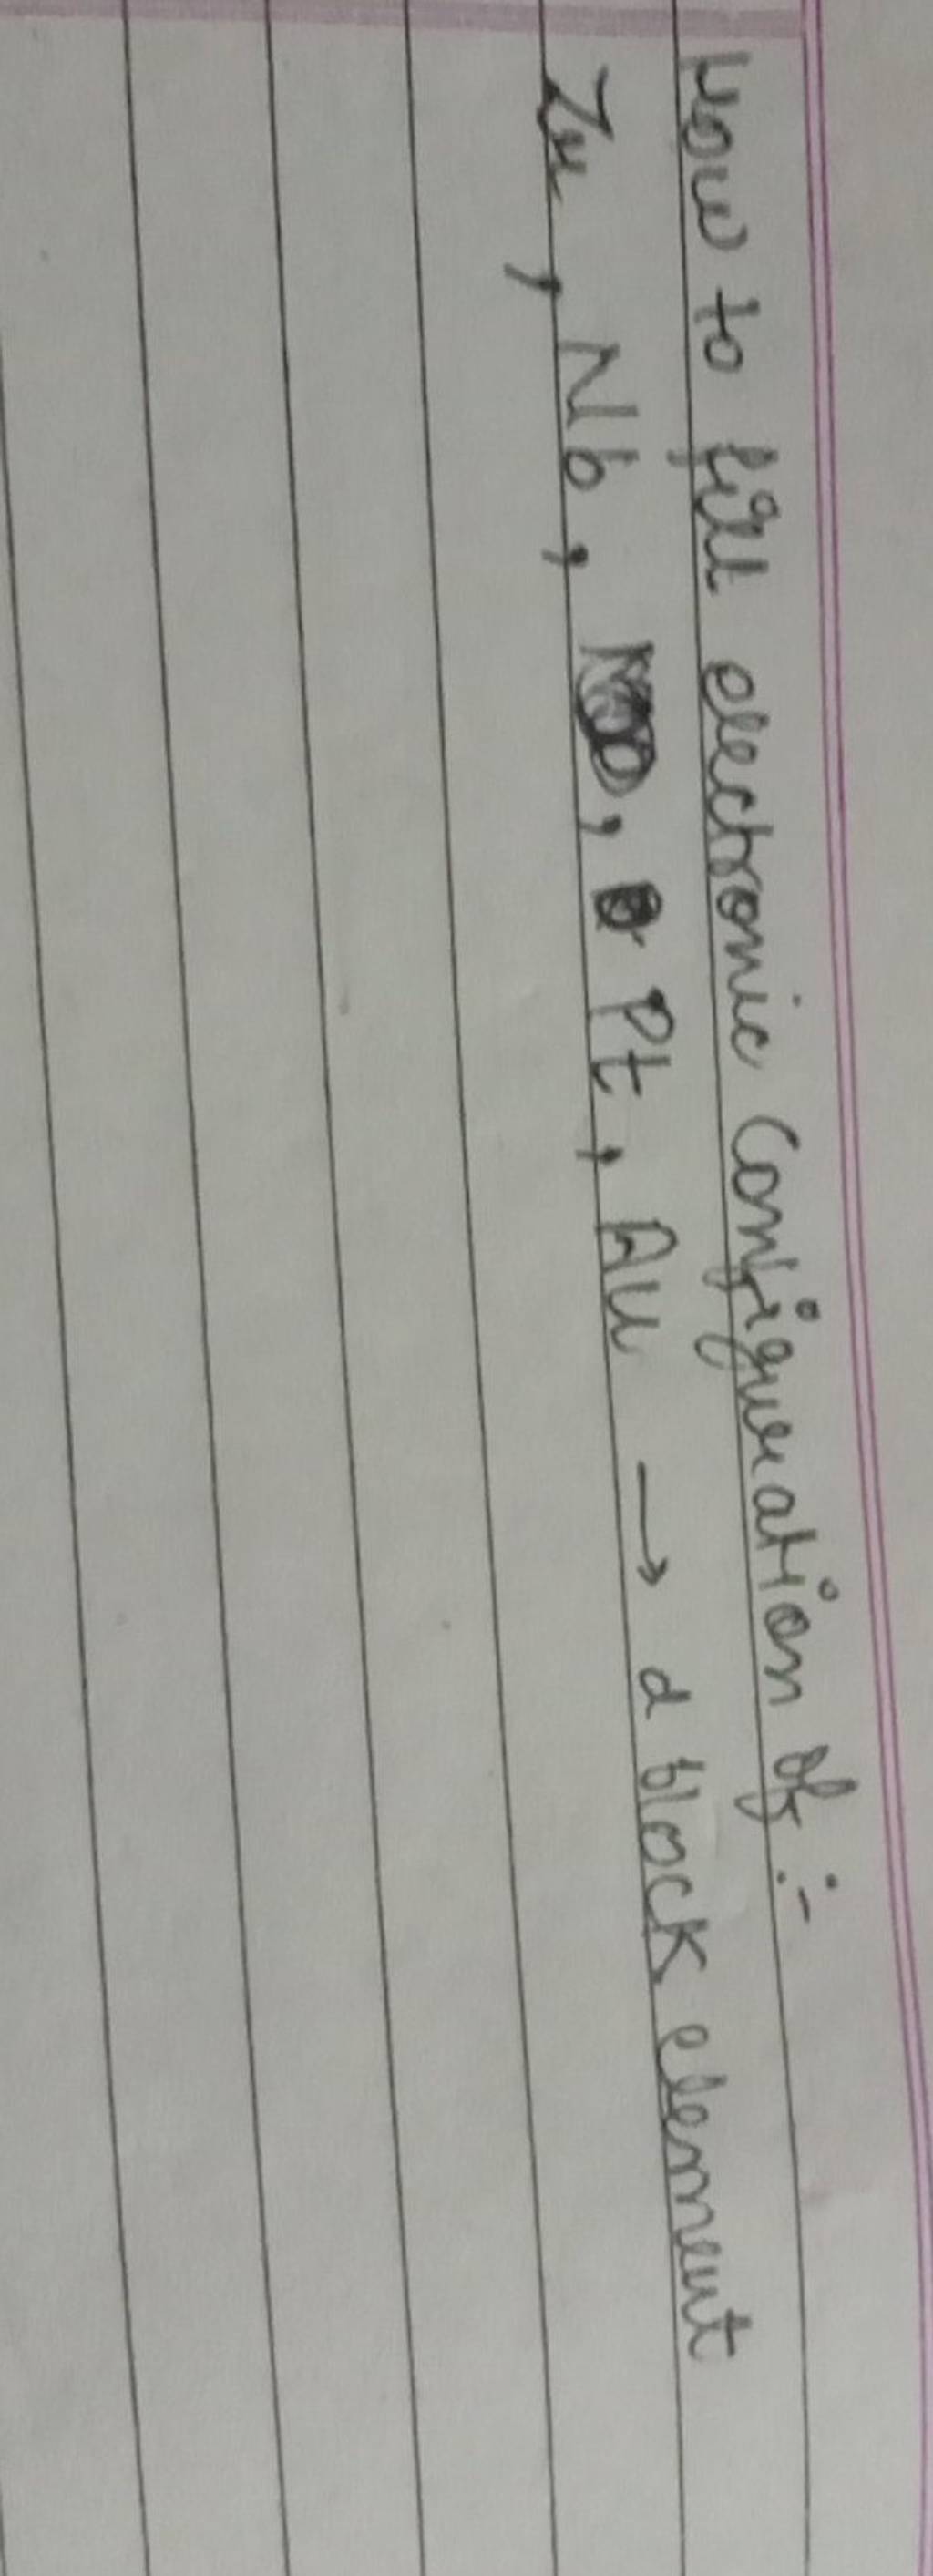 How to fill electronic configuration of :-
Zr, Nb, , Pt, Au → d block element